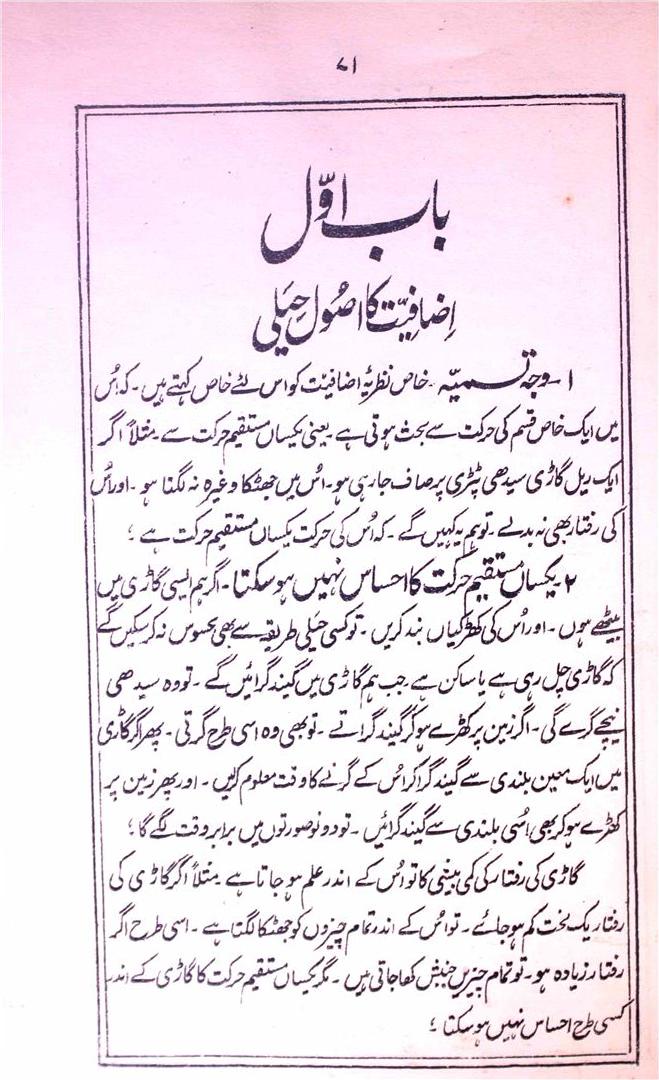 ۷۱
باب اوّل
اِضافیّت کا اصُولِ حِیَلی
۱۔ وجہ تسمیّہ۔ خاص نظریۂ اضافیت کو اس لئے خاص کہتے ہیں۔ کہ اُس
میں ایک خاص قسم کی حرکت سے بحث ہوتی ہے۔ یعنی یکساں مستقیم حرکت سے۔ مثلاً اگر
ایک ریل گاڑی سیدھی پٹڑی پر صاف جا رہی ہو۔ اُس میں جھٹکا وغیرہ نہ لگتا ہو۔ اور اُس
کی رفتار بھی نہ بدلے۔ تو ہم یہ کہیں گے۔ کہ اُس کی حرکت یکساں مستقیم حرکت ہے ؛
۲۔ یکساں مستقیم حرکت کا احساس نہیں ہو سکتا۔ اگر ہم ایسی گاڑی میں
بیٹھے ہوں۔ اور اُس کی کھڑکیاں بند کریں۔ تو کسی حِیَلی طریقے سے بھی محسوس نہ کر سکیں گے
کہ گاڑی چل رہی ہے یا ساکن ہے۔ جب ہم گاڑی میں گیند گرائیں گے۔ تو وہ سیدھی
نیچے گرے گی۔ اگر زمین پر کھڑے ہو کر گیند گراتے۔ تو بھی وہ اسی طرح گرتی۔ پھر اگر گاڑی
میں ایک معین بلندی سے گیند گرا کر اُس کے گرنے کا وقت معلوم کریں۔ اور پھر زمین پر
کھڑے ہو کر بھی اُسی بلندی سے گیند گرائیں۔ تو دونو صورتوں میں برابر وقت لگے گا ؛
گاڑی کی رفتار کی کمی بیشی کا تو اُس کے اندر علم ہو جاتا ہے۔ مثلاً اگر گاڑی کی
رفتار یک لخت کم ہو جائے۔ تو اُس کے اندر تمام چیزوں کو جھٹکا لگتا ہے۔ اسی طرح اگر
رفتار زیادہ ہو۔ تو تمام چیزیں جنبش کھا جاتی ہیں۔ مگر یکساں مستقیم حرکت کا گاڑی کے اندر
کسی طرح احساس نہیں ہو سکتا ؛